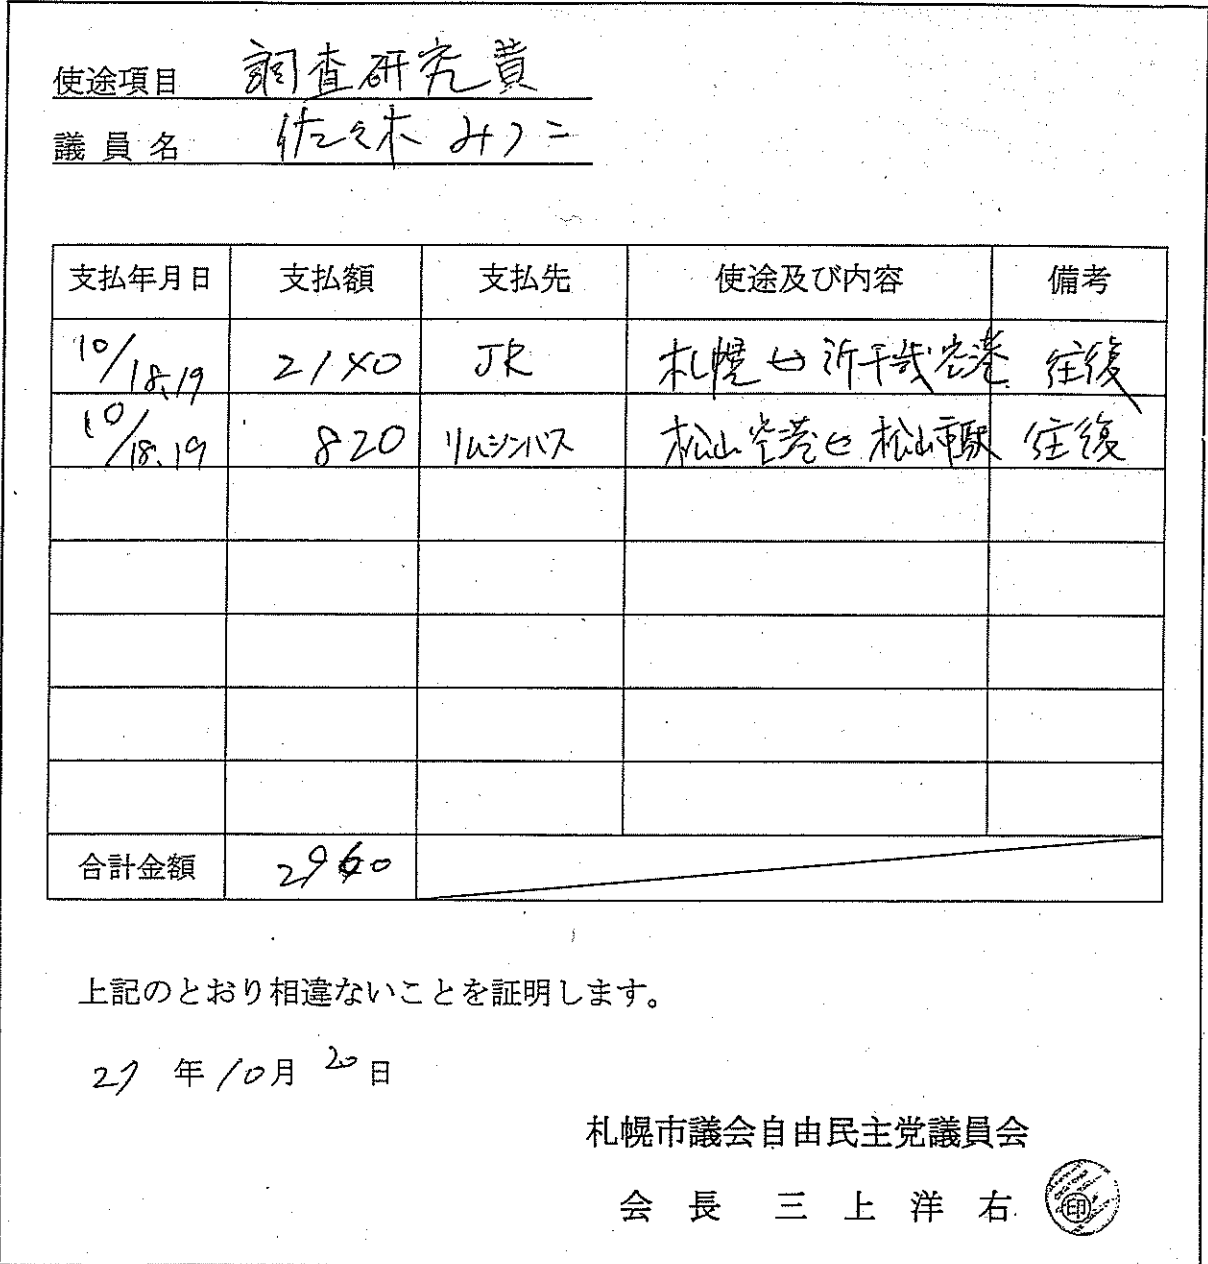 使途項目 調査研究費
議員名 佐々木 みつこ
支払年月日 支払額 支払先 使途及び内容 備考
10/18.19 2140 JR 札幌⇔新千歳空港 往復
10/18.19 820 リムジンバス 松山空港⇔松山市駅 往復
合計金額 2960
上記のとおり相違ないことを証明します。
27年10月20日
札幌市議会自由民主党議員会
会長 三上洋右 印